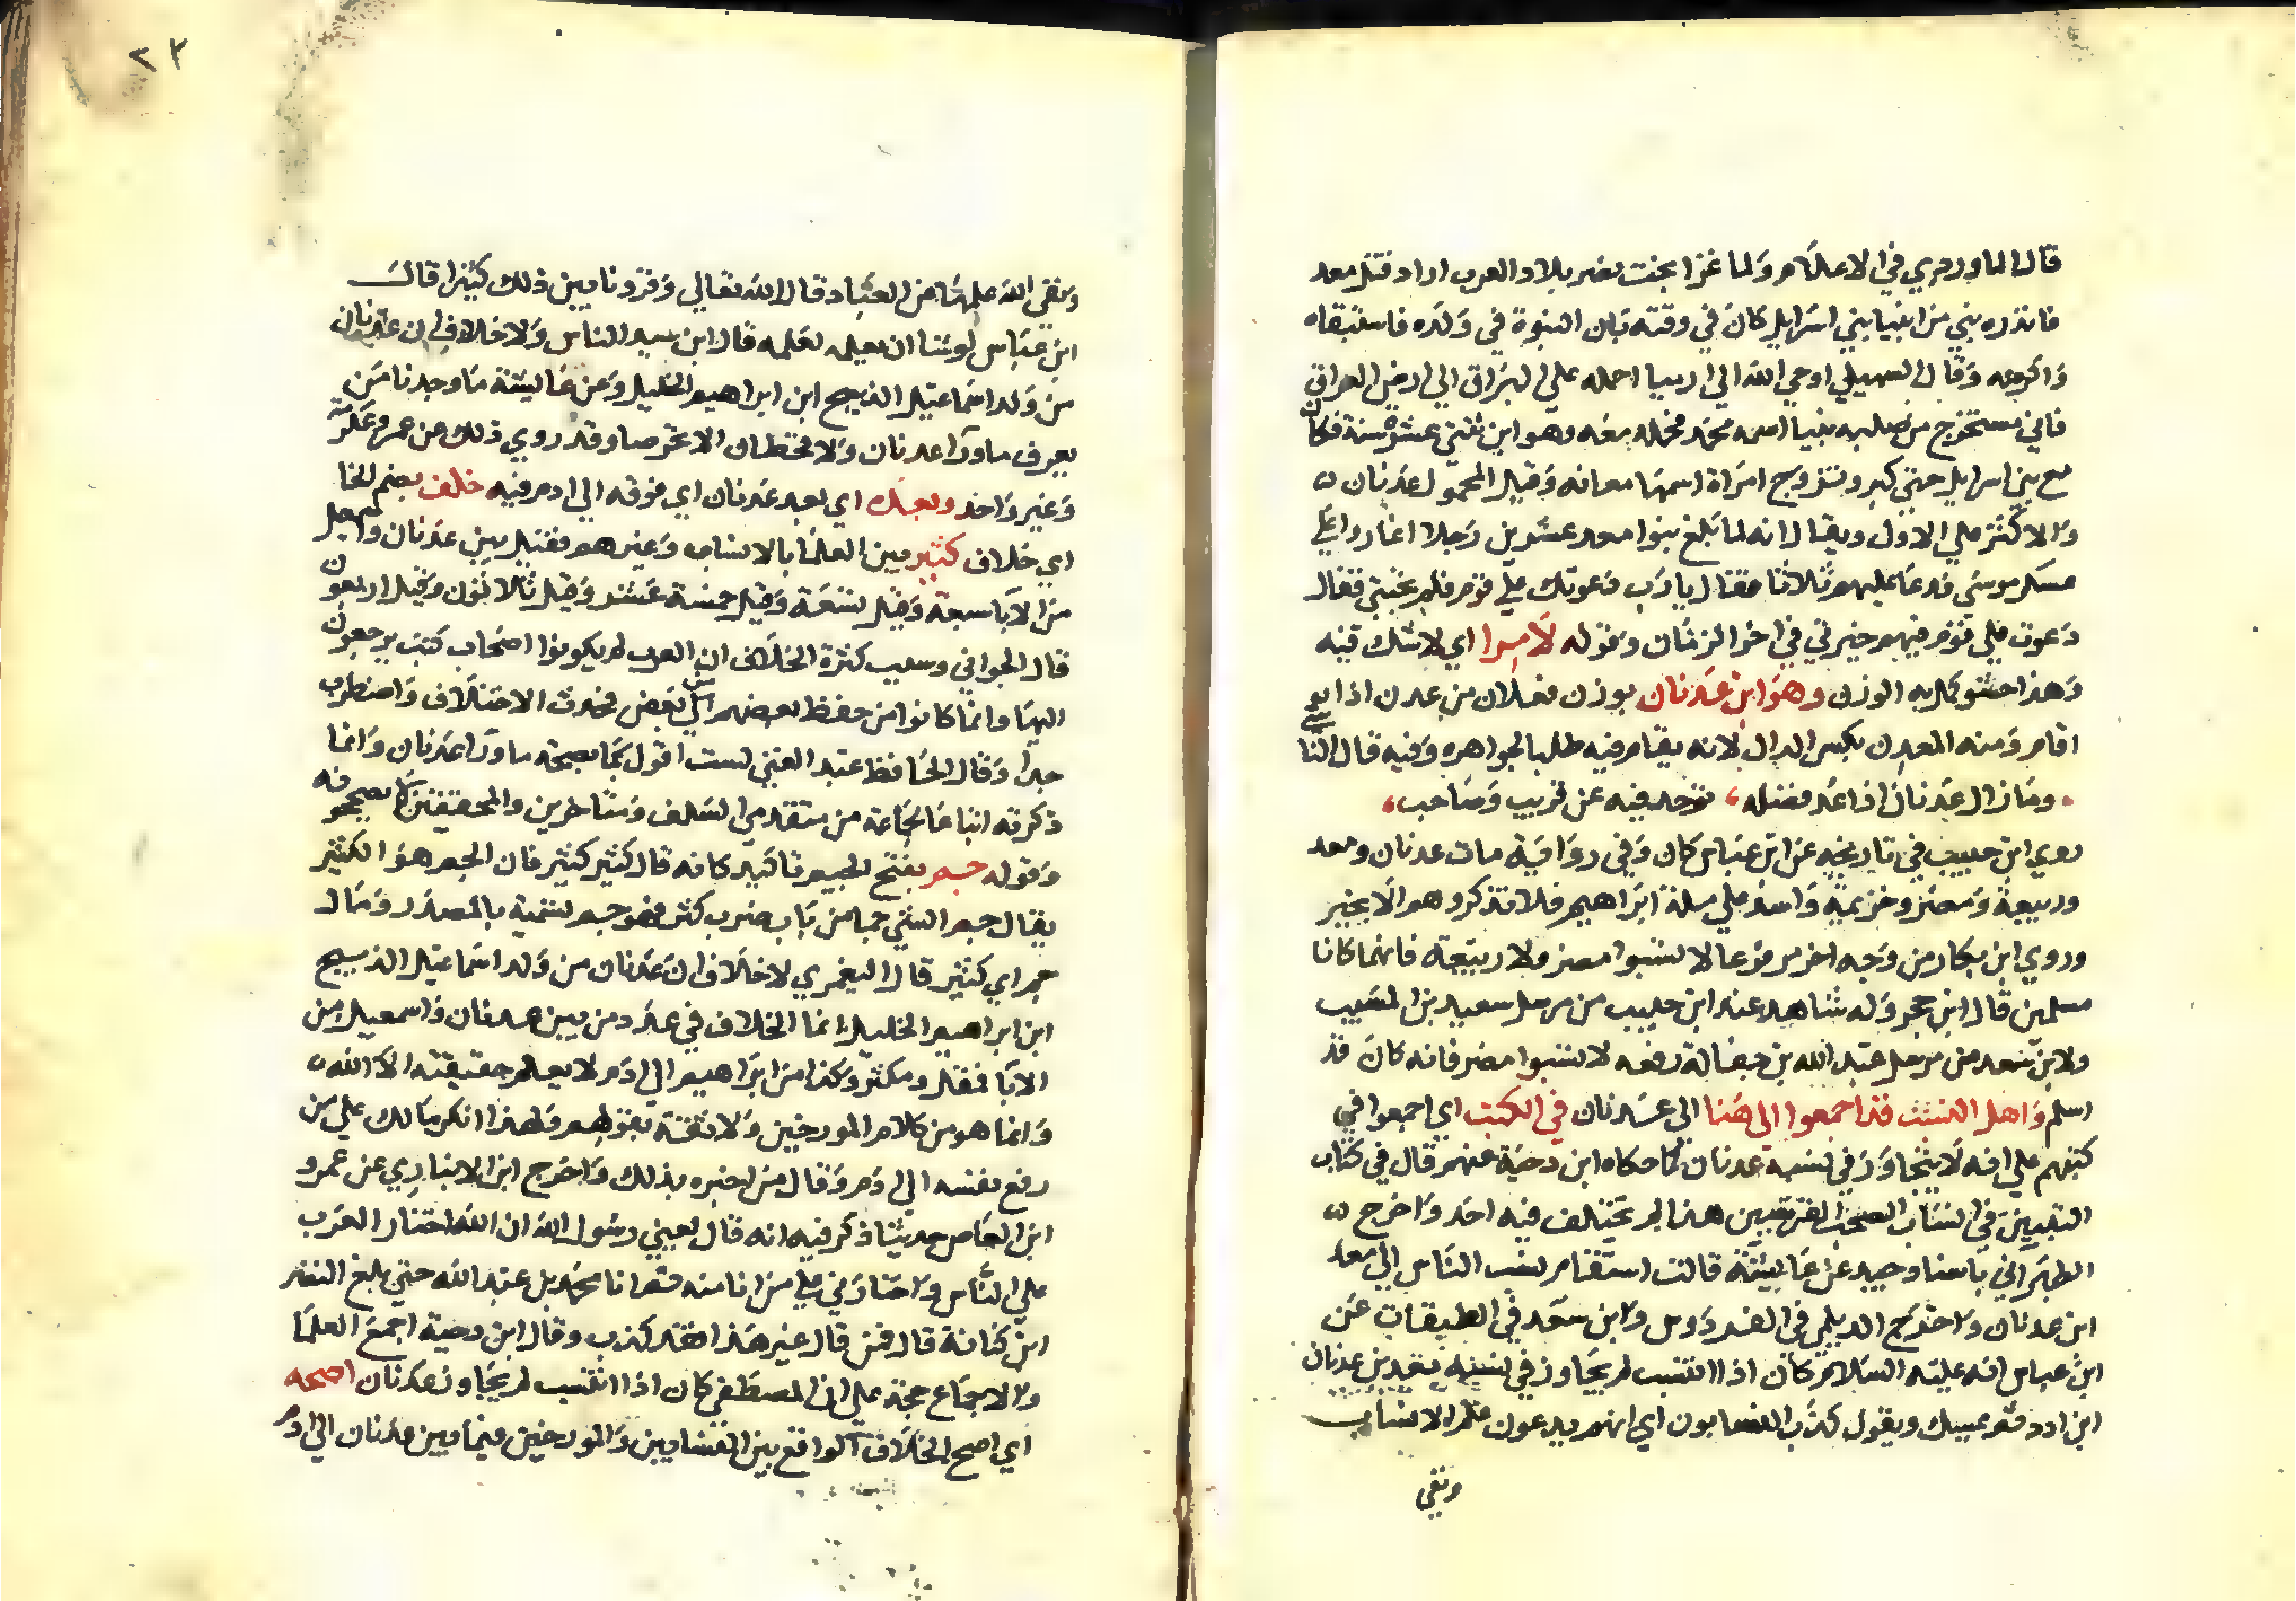 قال الماوردي في الاعلام ولما غزا بخت نصر بلاد العرب اراد قتل معد
فانذره نبي من انبيا بني اسرايل كان في وقته بان النبوة في ولده فاستبقاه
واكرمه وقال السهيلي اوحي الله الي ارميا احمله علي البراق الي ارض العراق
فاني مستخرج من صلبه نبيا اسمه محمد فحمله معه وهو ابن ثنتي عشرة سنة فكان
مع بني اسرايل حتي كبر وتزوج امراة اسمها معانه وقيل المحمول عدنان ه
والاكثر علي الاول ويقال انه لما بلغ بنوا معد عشرين رجلا اغاروا علي
عسكر موسي فدعا عليهم ثلاثا فقال يا رب دعوتك علي قوم فلم تجبني فقال
دعوت علي قوم فيهم خيرتي في اخر الزمان وقوله لا مرا اي لا شك فيه
وهذا حشو كمل به الوزن وهو ابن عدنان بوزن فعلان من عدن اذا
اقام ومنه المعدن بكسر الدال لانه يقام فيه طلبا لجواهره وفيه قال الناشي
وما زال عدنان اذا عد فضله ، توحد فيه عن قريب وصاحب ،
روي ابن حبيب في تاريخه عن ابن عباس كان وفي رواية مات عدنان ومعد
وربيعة ومضر وخزيمة واسد علي ملة ابراهيم فلا تذكروهم الا بخير
وروي ابن بكار من وجه اخر مرفوعا لا تسبوا مضر ولا ربيعة فانهما كانا
مسلمين قال ابن حجر وله شاهد عند ابن حبيب من مرسل سعيد بن المسيب
ولابن سعد من مرسل عبد الله بن خالد رفعه لا تسبوا مضر فانه كان قد
اسلم واهل النسب قد اجمعوا الى هنا الى عدنان في الكتب اي اجمعوا في
كتبهم علي انه لا يتجاوز في نسبه عدنان كما حكاه ابن دحية عنهم قال في كتاب
التبيين في انساب الصحب القرشيين هذا لم يختلف فيه احد واخرج ه
الطبراني باسناد جيد عن عايشة قالت استقام نسب الناس الي معد
ابن عدنان واخرج الديلمي في الفردوس وابن سعد في الطبقات عن
ابن عباس انه عليه السلام كان اذا انتسب لم يجاوز في نسبه معد بن عدنان
ابن ادد ثم يمسك ويقول كذب النسابون اي انهم يدعون علم الانساب
ونفي
٢٣
ونفي الله علمها من العباد قال الله تعالي وقرونا بين ذلك كثيرا قال
ابن عباس لو شا ان يعلمه لعلمه قال ابن سيد الناس ولا خلاف ان عدنان
من ولد اسماعيل الذبيح ابن ابراهيم الخليل وعن عايشة ما وجدنا من
يعرف ما ورا عدنان ولا قحطان الا تخرصا وقد روي ذلك عن عمر وعكرمة
وغير واحد وبعد اي بعد عدنان اي فوقه الي ادم فيه خلف بضم الخا
اي خلاف كثير بين العلما بالانساب وغيرهم فقيل بين عدنان واسمعيل
من الابا سبعة وقيل تسعة وقيل خمسة عشر وقيل ثلاثون وقيل اربعون
قال الجواني وسبب كثرة الخلاف ان العرب لم يكونوا اصحاب كتب يرجعون
اليها وانما كانوا من حفظ بعضهم الي بعض فحدث الاختلاف واضطرب
جدا وقال الحافظ عبد الغني لست اقول بما بصحة ما ورا عدنان وانما
ذكرته اتباعا لجماعة من متقدمي السلف ومتاخرين والمحققين
وقوله جم بفتح الجيم تاكيد كانه قال كثير كثير فان الجم هو الكثير
يقال جم الشي جما من باب ضرب كثر فهو جم تسمية بالمصدر ومال
جم اي كثير قال اليعمري لا خلاف ان عدنان من ولد اسماعيل الذبيح
ابن ابراهيم الخليل انما الخلاف في عدد من بين عدنان واسمعيل من
الابا فمقل ومكثر وكذا من ابراهيم الي ادم لا يعلم حقيقته الا الله ه
وانما هو من كلام المورخين ولا ثقة بقولهم ولهذا انكر مالك علي من
رفع نفسه الي ادم وقال من اخبره بذلك واخرج ابن الانباري عن عمرو
ابن العاص حديثا ذكر فيه انه قال يعني رسول الله ان الله اختار العرب
علي الناس واختارني علي من انا منه ثم انا محمد بن عبد الله حتي بلغ النضر
ابن كنانة قال فمن قال غير هذا فقد كذب وقال ابن دحية اجمع العلما
والاجماع حجة علي ان المصطفي كان اذا انتسب لم يجاوز عدنان اصحه
اي اصح الخلاف الواقع بين النسابين والمورخين فيما بين عدنان الي ادم